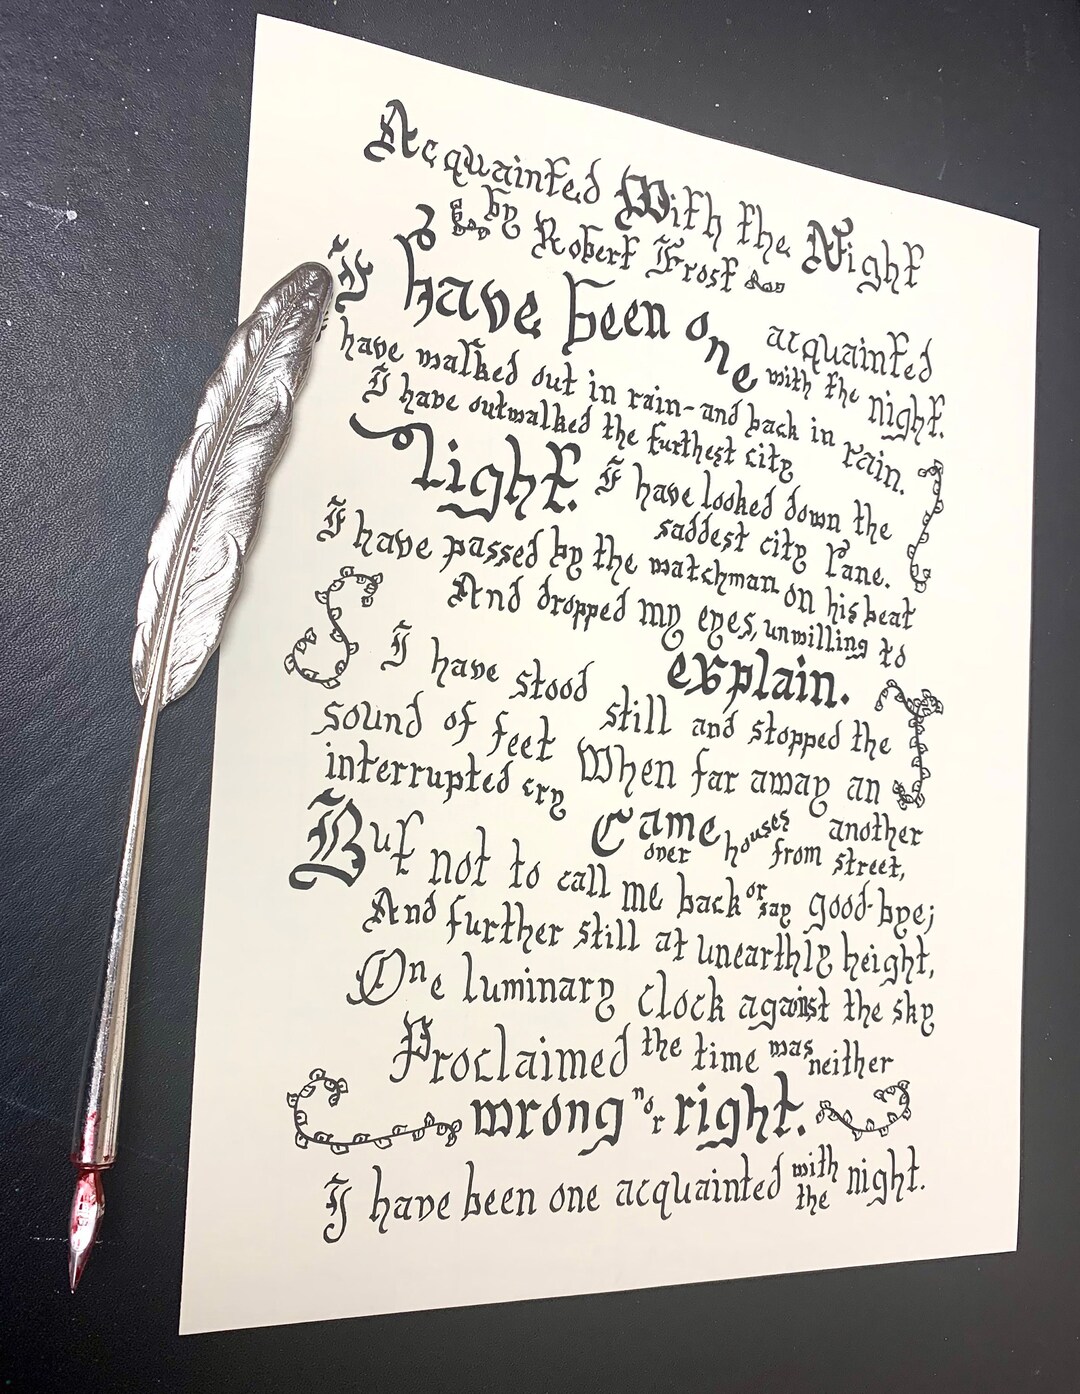 Acquainted With the Night
by Robert Frost
I have been one acquainted with the night.
I have walked out in rain-and back in rain.
I have outwalked the furthest city
light. I have looked down the
saddest city lane.
I have passed by the watchman on his beat
And dropped my eyes, unwilling to
explain.
I have stood still and stopped the
sound of feet When far away an
interrupted cry
Came over houses from another street,
But not to call me back or say good-bye;
And further still at unearthly height,
One luminary clock against the sky
Proclaimed the time was neither
wrong nor right.
I have been one acquainted with the night.